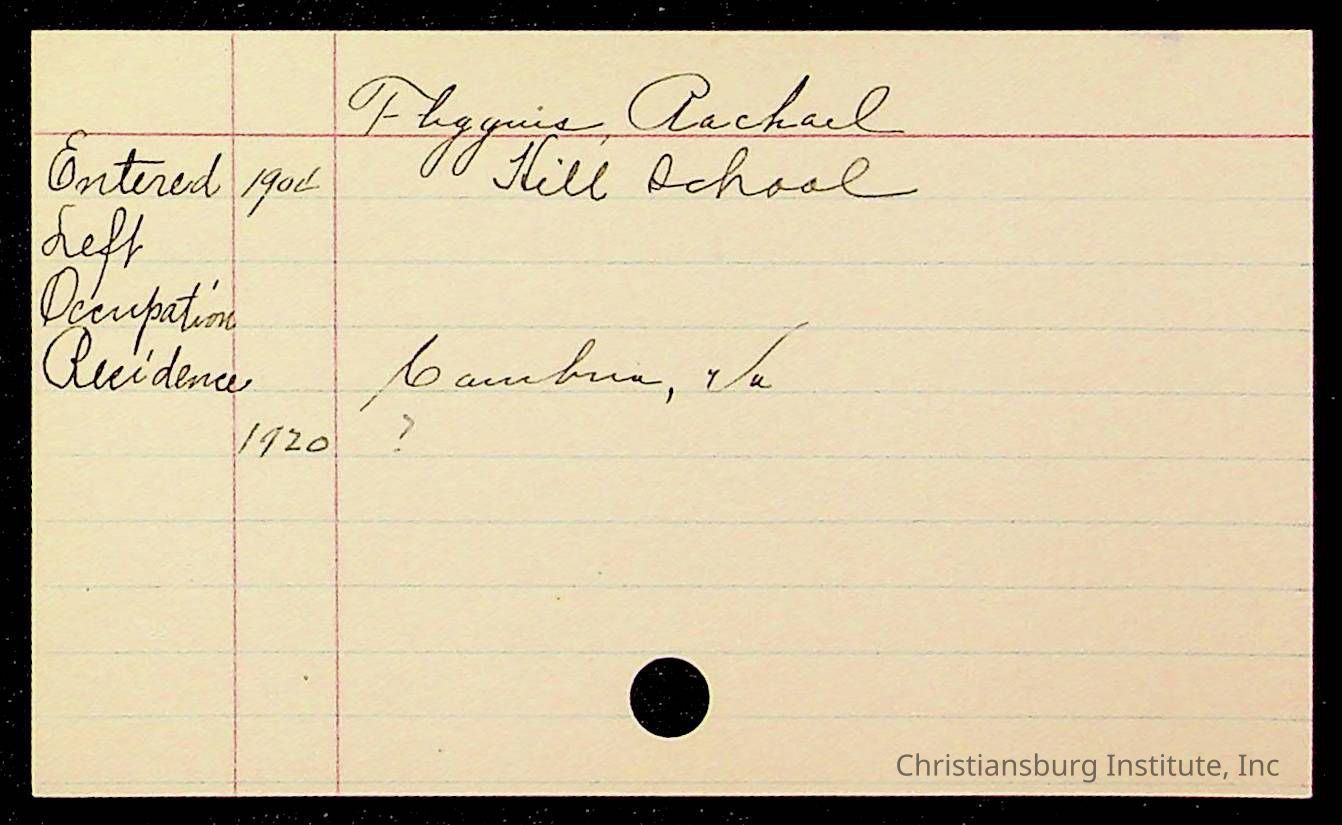 Fliggins, Rachael
Entered 1901 Hill School
Left
Occupation
Residence Cambria, Va
1920 ?
Christiansburg Institute, Inc